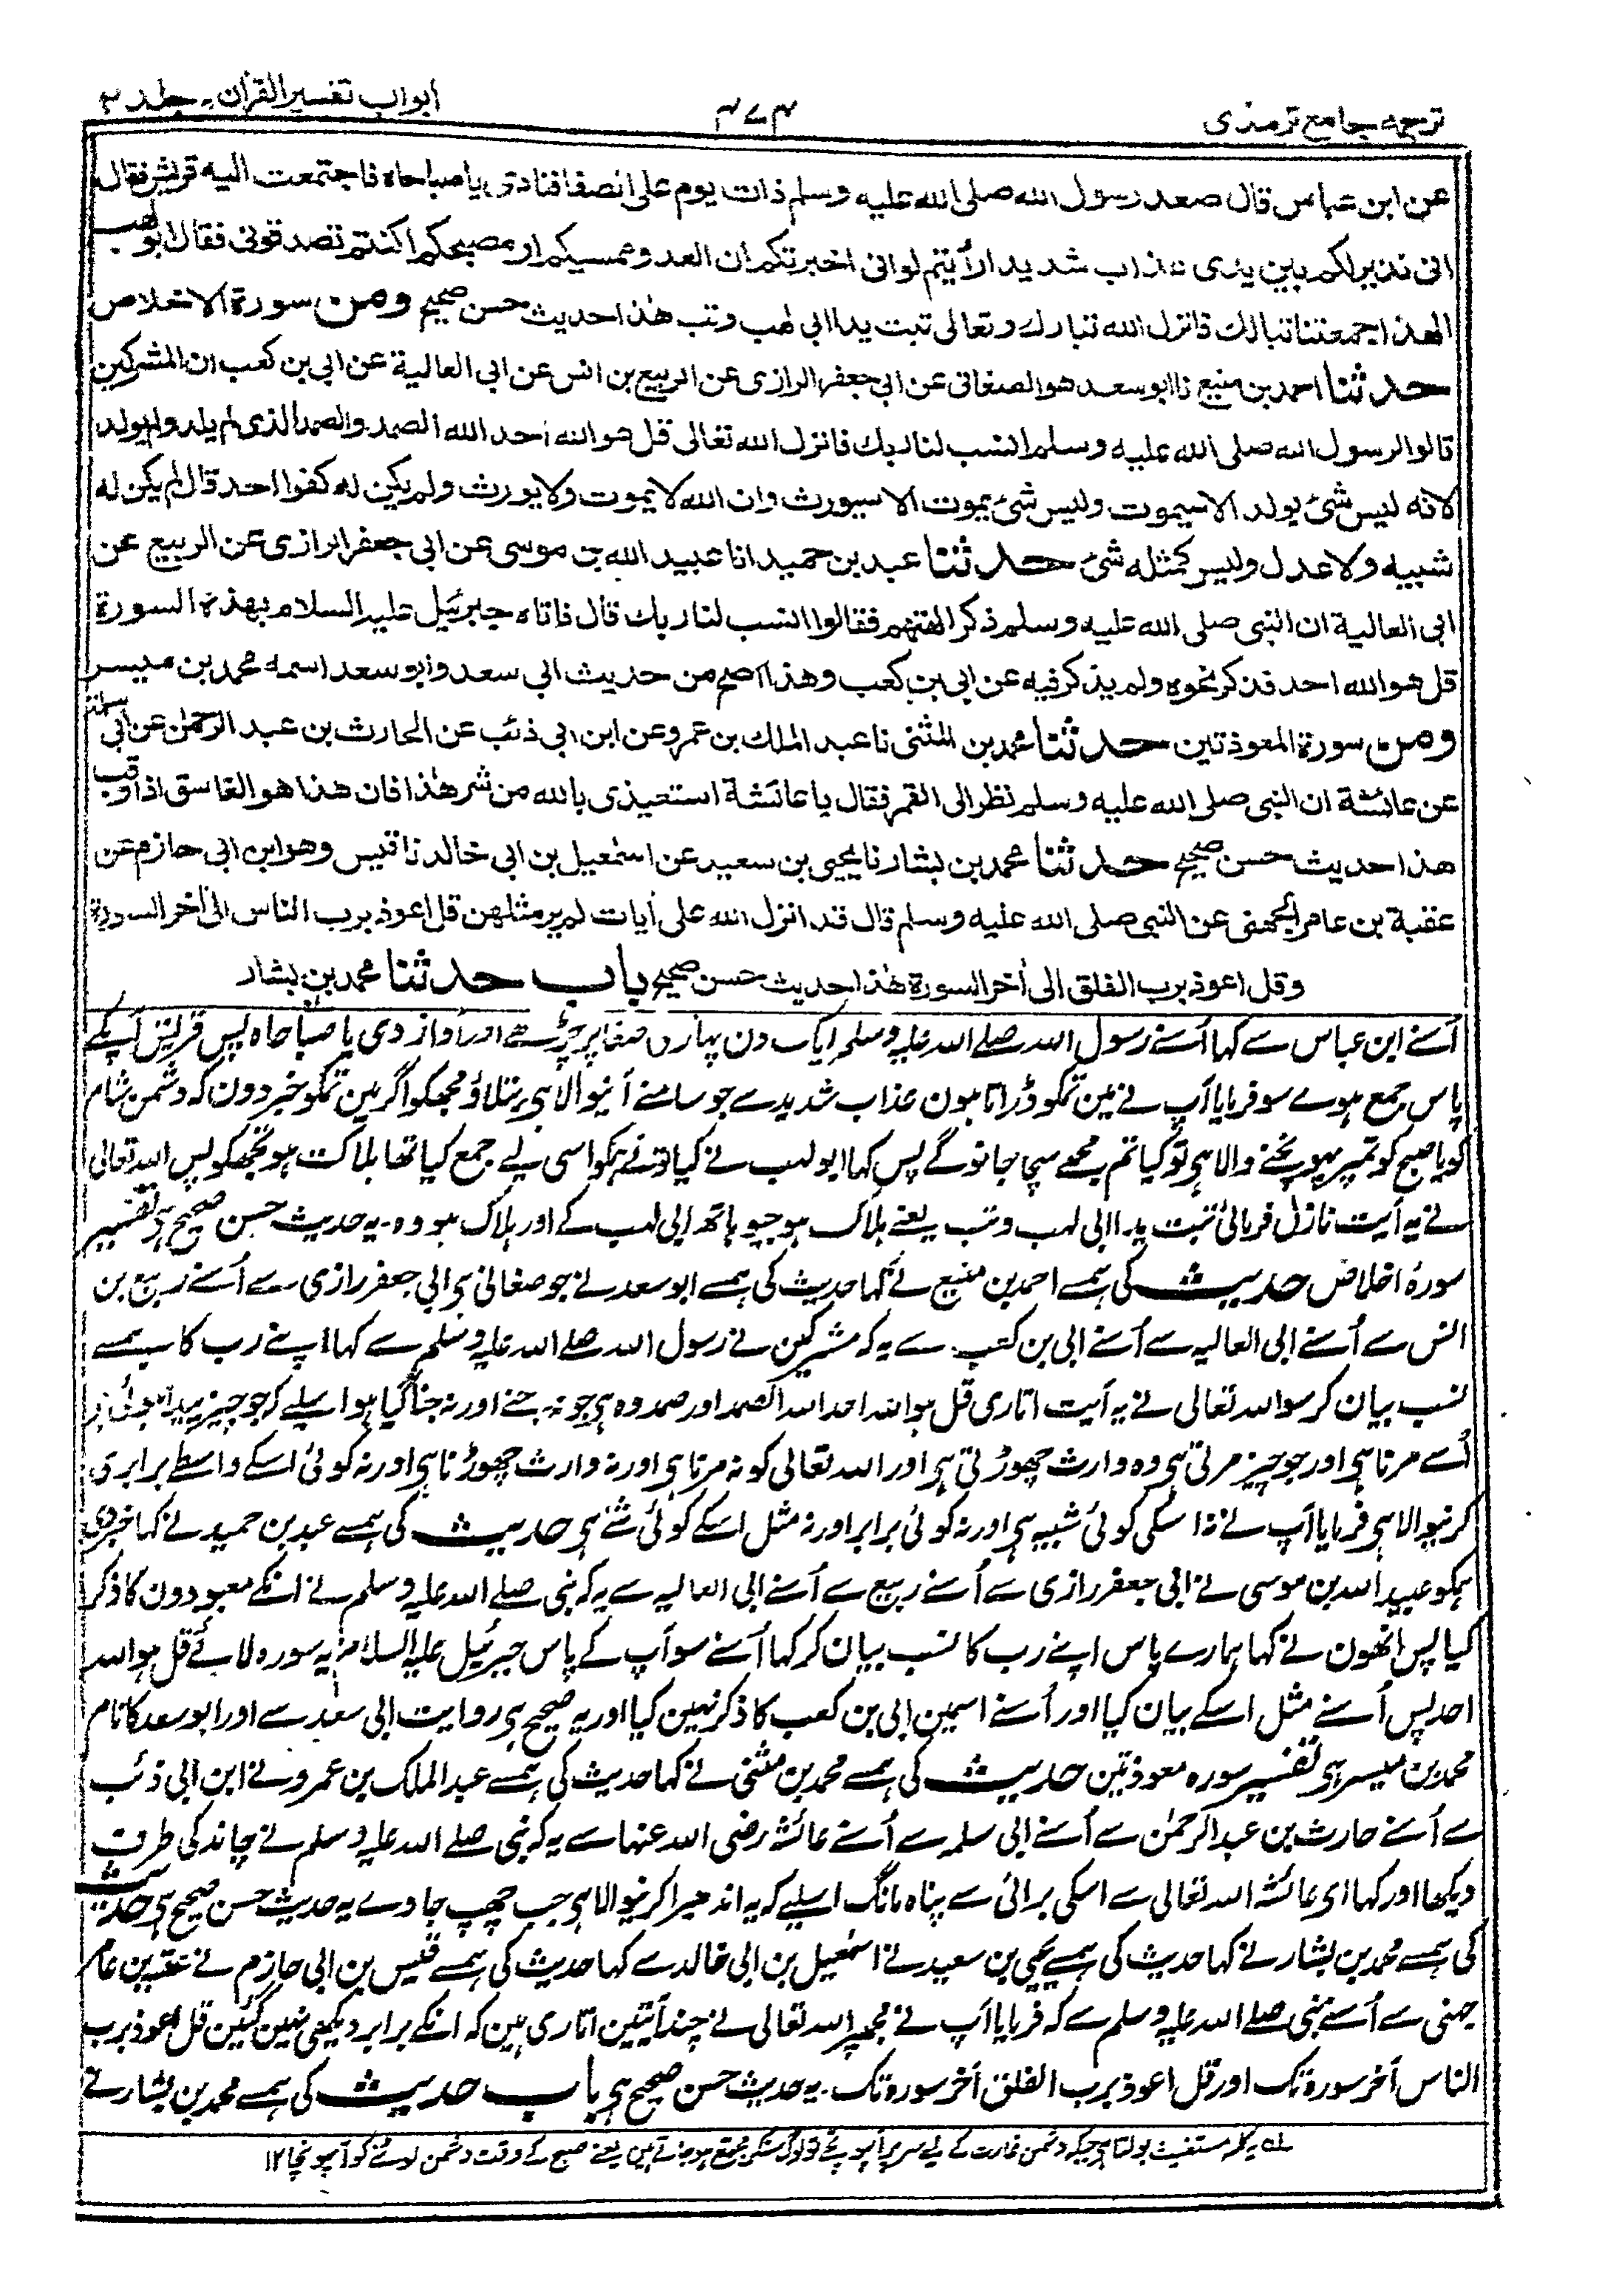 ترجمه جامع ترمذی
۴۷۴
ابواب تفسیر القرآن ۔ جلد ۲
عن ابن عباس قال صعد رسول الله صلى الله عليه وسلم ذات يوم على الصفا فنادى يا صباحاه فاجتمعت اليه قريش فقال
انى نذير لكم بين يدى عذاب شديد ارأيتم لو انى اخبرتكم ان العدو ممسيكم او مصبحكم اكنتم تصدقونى فقال ابو لهب
الهذا جمعتنا تبالك فانزل الله تبارك وتعالى تبت يدا ابى لهب وتب هذا حديث حسن صحيح ومن سورة الاخلاص
حدثنا احمد بن منيع نا ابو سعد هو الصغانى عن ابى جعفر الرازى عن الربيع بن انس عن ابى العالية عن ابى بن كعب ان المشركين
قالوا لرسول الله صلى الله عليه وسلم انسب لنا ربك فانزل الله تعالى قل هو الله احد الله الصمد والصمد الذى لم يلد ولم يولد
لانه ليس شئ يولد الا سيموت وليس شئ يموت الا سيورث وان الله لا يموت ولا يورث ولم يكن له كفوا احد قال لم يكن له
شبيه ولا عدل وليس كمثله شئ حدثنا عبد بن حميد انا عبيد الله بن موسى عن ابى جعفر الرازى عن الربيع عن
ابى العالية ان النبى صلى الله عليه وسلم ذكر الهتهم فقالوا انسب لنا ربك قال فاتاه جبرئيل عليه السلام بهذه السورة
قل هو الله احد فذكر نحوه ولم يذكر فيه عن ابى بن كعب وهذا اصح من حديث ابى سعد وابو سعد اسمه محمد بن ميسر
ومن سورة المعوذتين حدثنا محمد بن المثنى نا عبد الملك بن عمرو عن ابن ابى ذئب عن الحارث بن عبد الرحمن عن ابى سلمة
عن عائشة ان النبى صلى الله عليه وسلم نظر الى القمر فقال يا عائشة استعيذى بالله من شر هذا فان هذا هو الغاسق اذا وقب
هذا حديث حسن صحيح حدثنا محمد بن بشار نا يحيى بن سعيد عن اسمعيل بن ابى خالد نا قيس وهو ابن ابى حازم عن
عقبة بن عامر الجهنى عن النبى صلى الله عليه وسلم قال قد انزل الله على أيات لم ير مثلهن قل اعوذ برب الناس الى أخر السورة
وقل اعوذ برب الفلق الى أخر السورة هذا حديث حسن صحيح باب حدثنا محمد بن بشار
اُسنے ابن عباس سے کہا اُسنے رسول اللہ صلے اللہ علیہ وسلم ایک دن پہاڑ صفا پر چڑھے اور آواز دی یا صباحاہ پس قریش آپکے
پاس جمع ہوے سو فرمایا آپ نے مین تمکو ڈراتا ہون عذاب شدید سے جو سامنے آنیوالا ہی بتلاؤ مجھکو اگر مین تمکو خبر دون کہ دشمن شام
کو یا صبح کو تمپر پہونچنے والا ہی تو کیا تم مجھے سچا جانوگے پس کہا ابو لہب نے کیا تونے ہمکو اسی لیے جمع کیا تھا ہلاکت ہو تجھکو پس اللہ تعالی
نے یہ آیت نازل فرمائی تبت یدا ابی لہب وتب یعنے ہلاک ہوجیو ہاتھ ابی لہب کے اور ہلاک ہو وہ ۔ یہ حدیث حسن صحیح ہی تفسیر
سورۂ اخلاص حدیث کی ہمسے احمد بن منیع نے کہا حدیث کی ہمسے ابو سعد نے جو صغانی ہی ابی جعفر رازی سے اُسنے ربیع بن
انس سے اُسنے ابی العالیہ سے اُسنے ابی بن کعب سے یہ کہ مشرکین نے رسول اللہ صلے اللہ علیہ وسلم سے کہا اپنے رب کا ہمسے
نسب بیان کر سو اللہ تعالی نے یہ آیت اتاری قل ہو اللہ احد اللہ الصمد اور صمد وہ ہی جو نہ جنے اور نہ جنا گیا ہو اسلیے کہ جو چیز پیدا ہوئی ہی
اُسے مرنا ہی اور جو چیز مرتی ہی وہ وارث چھوڑتی ہی اور اللہ تعالی کو نہ مرنا ہی اور نہ وارث چھوڑنا ہی اور نہ کوئی اسکے واسطے برابری
کرنیوالا ہی فرمایا آپ نے نہ اسکی کوئی شبیہ ہی اور نہ کوئی برابر اور نہ مثل اسکے کوئی شئے ہی حدیث کی ہمسے عبد بن حمید نے کہا خبر دی
ہمکو عبید اللہ بن موسی نے ابی جعفر رازی سے اُسنے ربیع سے اُسنے ابی العالیہ سے یہ کہ نبی صلے اللہ علیہ وسلم نے انکے معبودون کا ذکر
کیا پس انھون نے کہا ہمارے پاس اپنے رب کا نسب بیان کر کہا اُسنے سو آپ کے پاس جبرئیل علیہ السلام یہ سورہ لائے قل ہو اللہ
احد پس اُسنے مثل اسکے بیان کیا اور اُسنے اسمین ابی بن کعب کا ذکر نہین کیا اور یہ صحیح ہی روایت ابی سعد سے اور ابو سعد کا نام
محمد بن میسر ہی تفسیر سورہ معوذتین حدیث کی ہمسے محمد بن مثنی نے کہا حدیث کی ہمسے عبد الملک بن عمرو نے ابن ابی ذئب
سے اُسنے حارث بن عبد الرحمٰن سے اُسنے ابی سلمہ سے اُسنے عائشہ رضی اللہ عنہا سے یہ کہ نبی صلے اللہ علیہ وسلم نے چاند کی طرف
دیکھا اور کہا ای عائشہ اللہ تعالی سے اسکی برائی سے پناہ مانگ اسلیے کہ یہ اندھیرا کرنیوالا ہی جب چھپ جاوے یہ حدیث حسن صحیح ہی حدیث
کی ہمسے محمد بن بشار نے کہا حدیث کی ہمسے یحیی بن سعید نے اسمٰعیل بن ابی خالد سے کہا حدیث کی ہمسے قیس بن ابی حازم نے عقبہ بن عامر
جہنی سے اُسنے نبی صلے اللہ علیہ وسلم سے کہ فرمایا آپ نے مجھپر اللہ تعالی نے چند آیتین اتاری ہین کہ انکے برابر دیکھی نہین گئین قل اعوذ برب
الناس آخر سورہ تک اور قل اعوذ برب الفلق آخر سورہ تک ۔ یہ حدیث حسن صحیح ہی باب حدیث کی ہمسے محمد بن بشار نے
ـله یہ کلمہ مستغیث بولتا ہی جبکہ دشمن غارت کے لیے سر پر آپہونچے تو لوگ سنکر مجتمع ہو جاتے ہین یعنے صبح کے وقت دشمن لوٹنے کو آپہونچا ۱۲